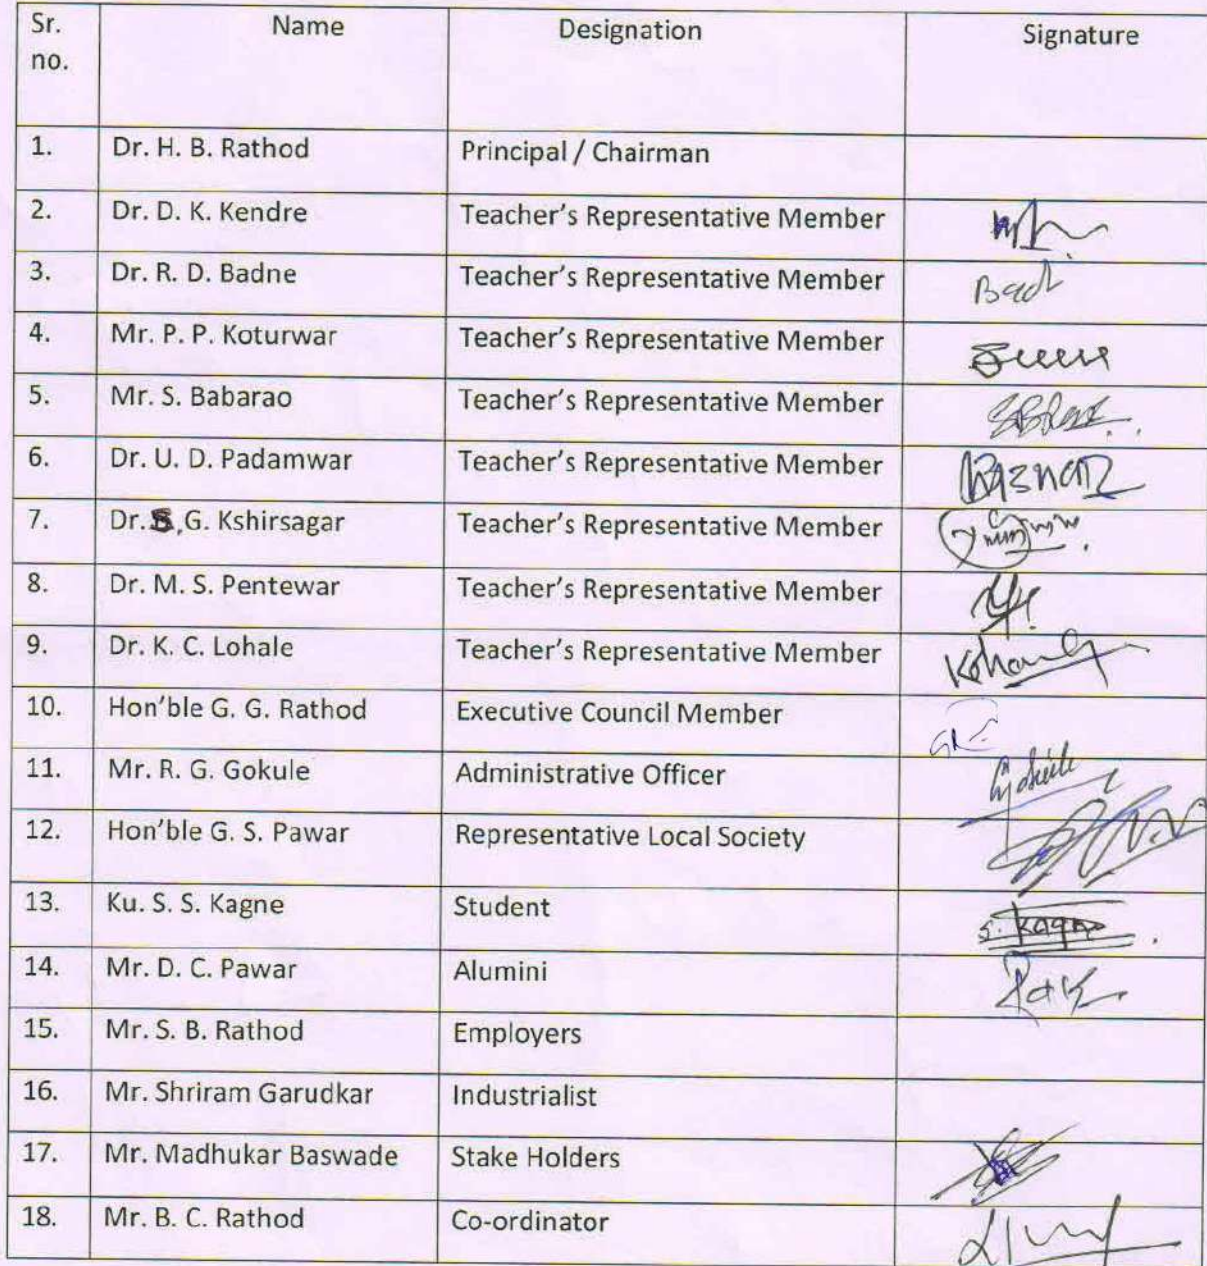 Sr. no. Name Designation Signature
1. Dr. H. B. Rathod Principal / Chairman
2. Dr. D. K. Kendre Teacher's Representative Member
3. Dr. R. D. Badne Teacher's Representative Member
4. Mr. P. P. Koturwar Teacher's Representative Member
5. Mr. S. Babarao Teacher's Representative Member
6. Dr. U. D. Padamwar Teacher's Representative Member
7. Dr. S. G. Kshirsagar Teacher's Representative Member
8. Dr. M. S. Pentewar Teacher's Representative Member
9. Dr. K. C. Lohale Teacher's Representative Member
10. Hon'ble G. G. Rathod Executive Council Member
11. Mr. R. G. Gokule Administrative Officer
12. Hon'ble G. S. Pawar Representative Local Society
13. Ku. S. S. Kagne Student S. Kagne
14. Mr. D. C. Pawar Alumini
15. Mr. S. B. Rathod Employers
16. Mr. Shriram Garudkar Industrialist
17. Mr. Madhukar Baswade Stake Holders
18. Mr. B. C. Rathod Co-ordinator